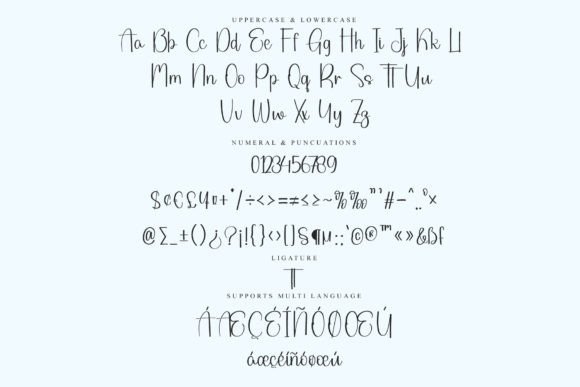 UPPERCASE & LOWERCASE
Aa Bb Cc Dd Ee Ff Gg Hh Ii Jj Kk Ll
Mm Nn Oo Pp Qq Rr Ss Tt Uu
Vv Ww Xx Yy Zz
NUMERAL & PUNCUATIONS
0123456789
$¢€£¥¤+*/÷<>=≠≤≥~%‰"'#-^.,ºˣ
@∑_±()¿?¡!{}‹›[]§¶µ:;`©®™«»&ßƒ
LIGATURE
TT
SUPPORTS MULTI LANGUAGE
ÁÆÇÉÍÑÓØŒÚ
áæçéíñóøœú